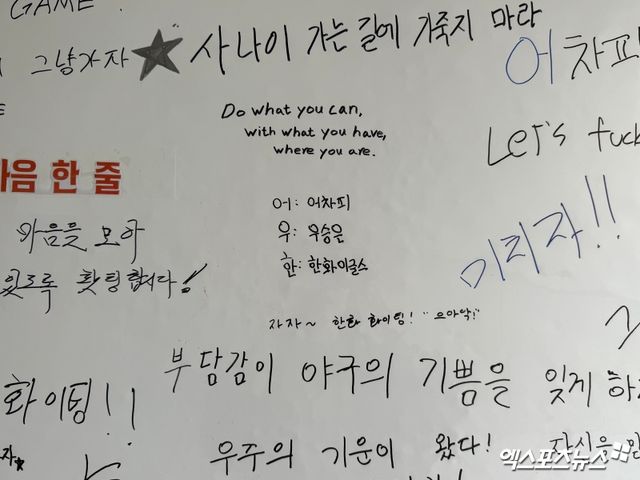 GAME.
그냥가자 ★ 사나이 가는 길에 기죽지 마라
어차피
Do what you can,
with what you have,
where you are.
Let's fuck
마음 한 줄
어: 어차피
우: 우승은
한: 한화이글스
마음을 모아
있도록 홧팅합니다!
미리자!!
자자~ 한화 화이팅! "으아악!"
부담감이 야구의 기쁨을 잊게 하
화이팅!!
우주의 기운이 왔다!
자신을 믿
엑스포츠뉴스